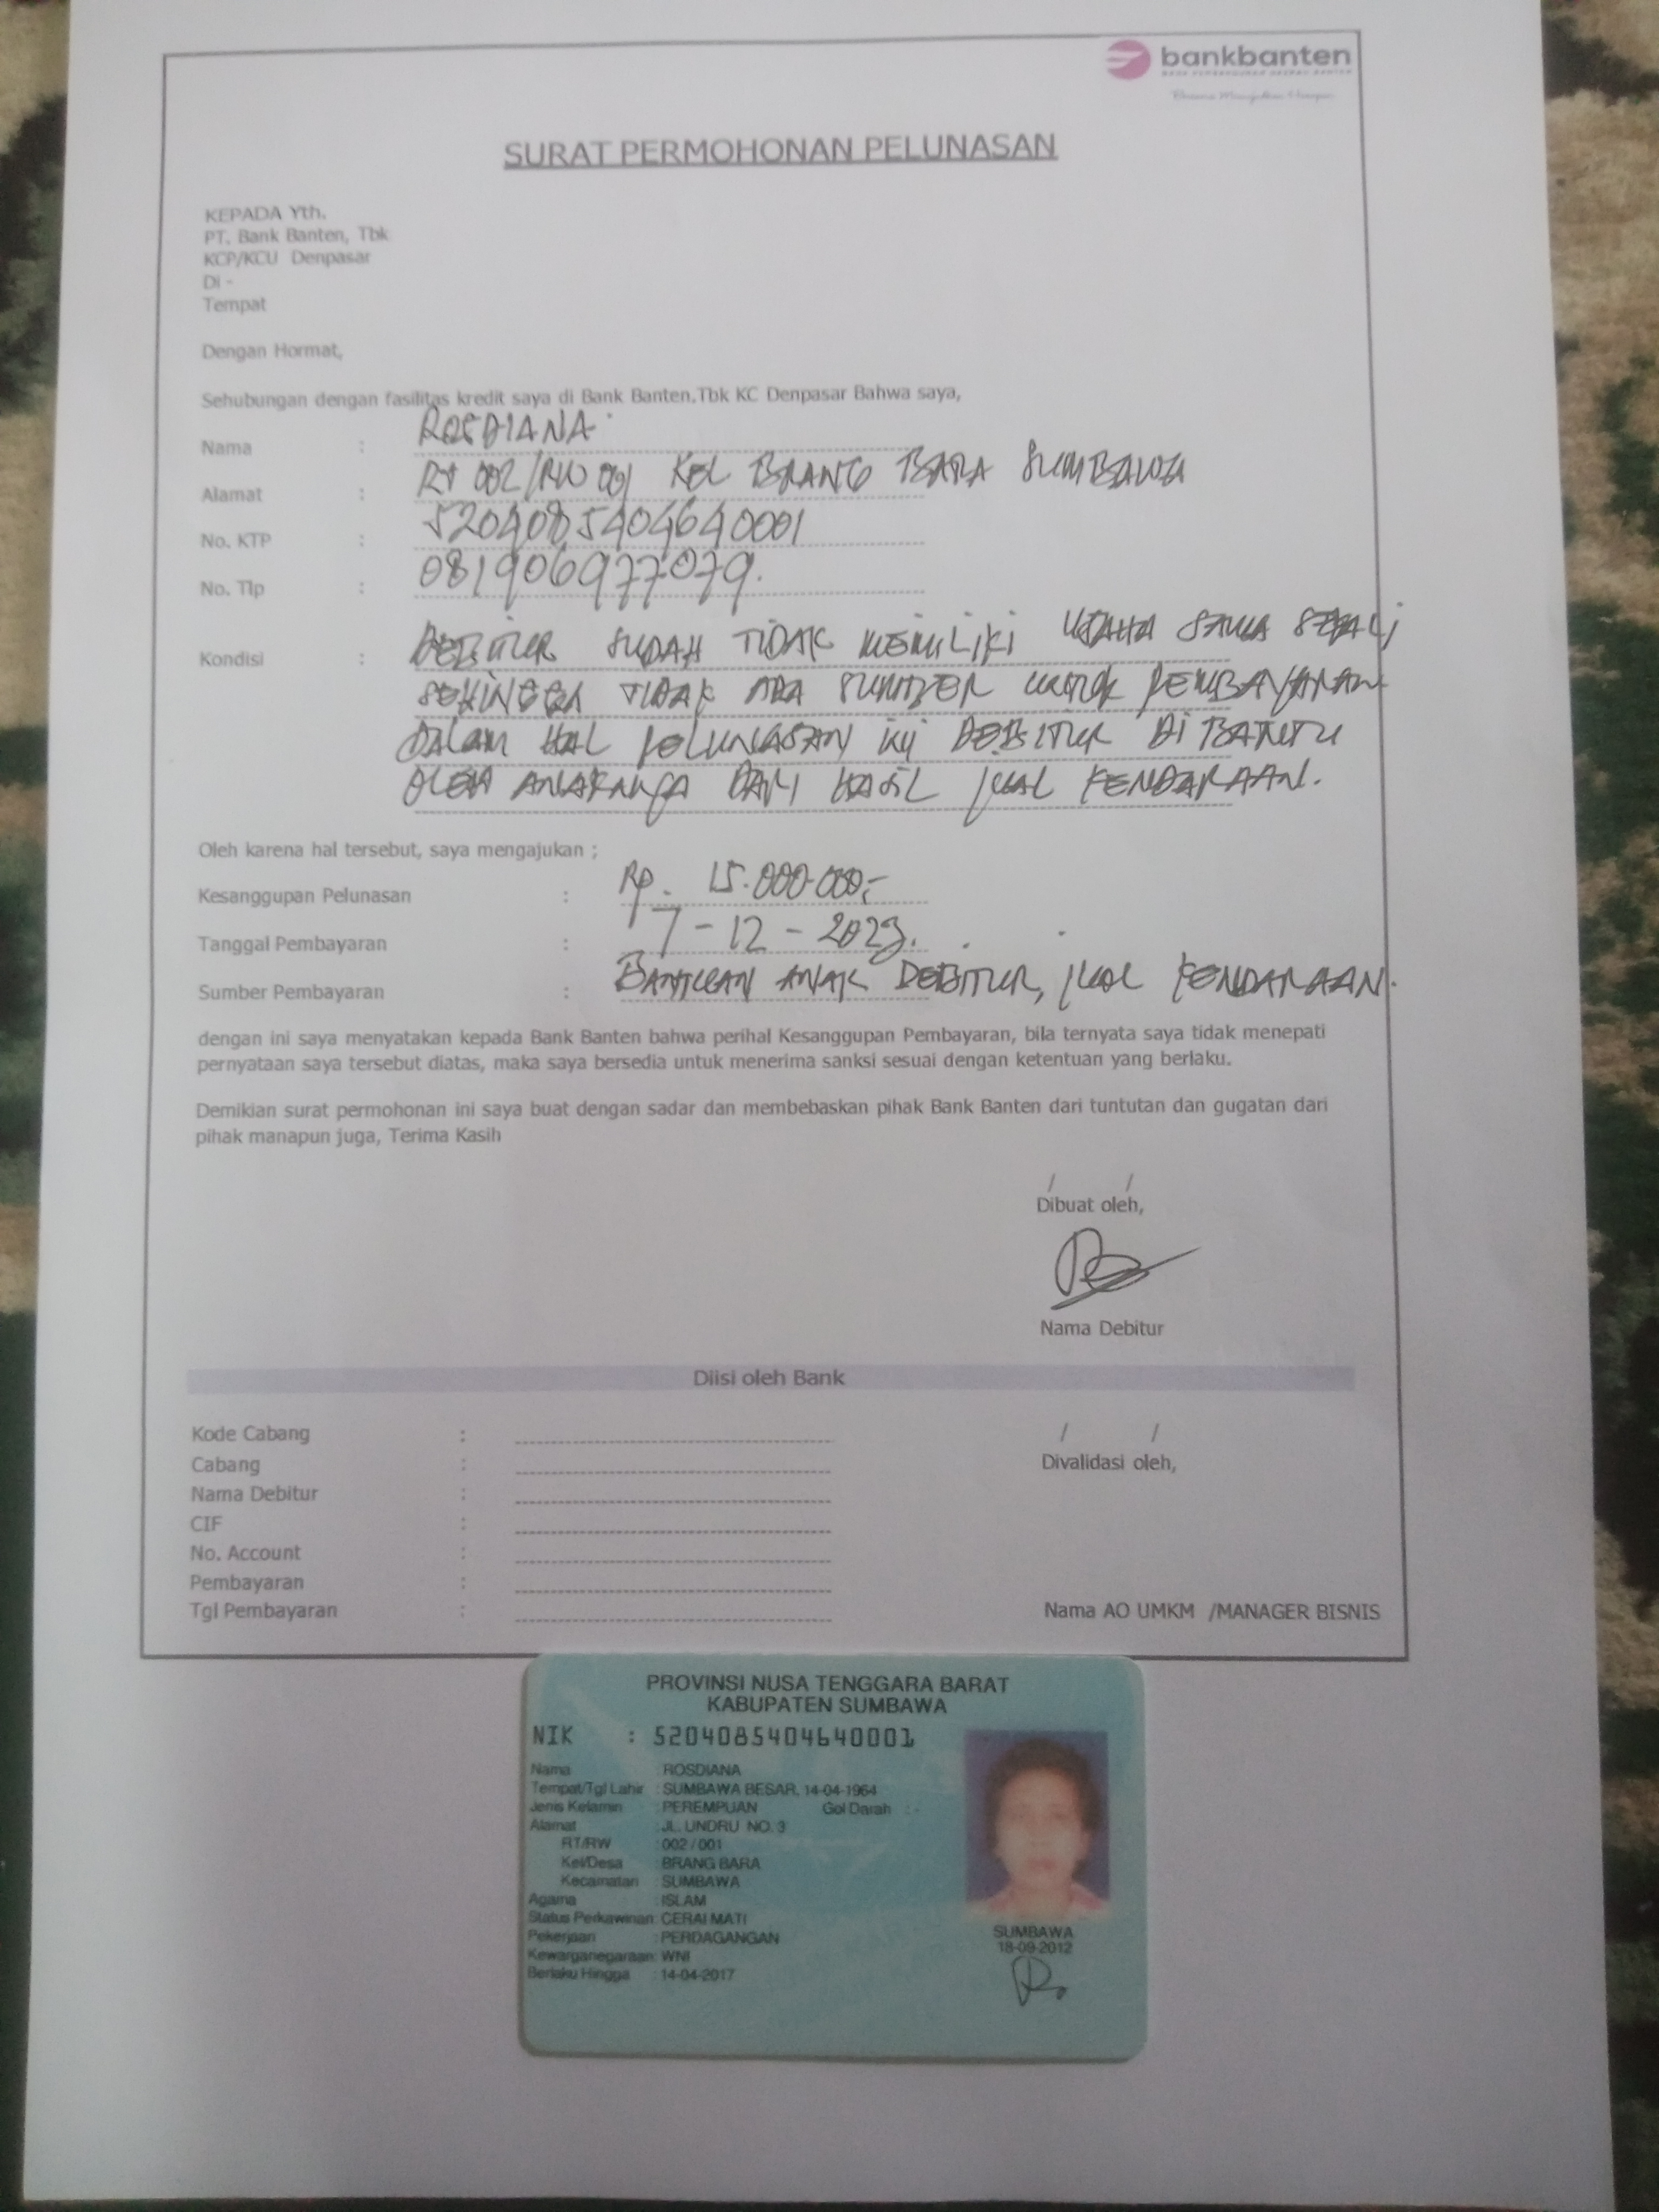 bankbanten
SURAT PERMOHONAN PELUNASAN
KEPADA Yth.
PT. Bank Banten, Tbk
KCP/KCU Denpasar
Di -
Tempat
Dengan Hormat,
Sehubungan dengan fasilitas kredit saya di Bank Banten,Tbk KC Denpasar Bahwa saya,
Nama : ROSDIANA
Alamat : RT 002/RW 001 KEL BRANG BARA SUMBAWA
No. KTP : 5204085404640001
No. Tlp : 081906977079.
Kondisi : DEBITUR SUDAH TIDAK MEMILIKI USAHA SAMA SEKALI
SEHINGGA TIDAK ADA SUMBER UNTUK PEMBAYARAN
DALAM HAL PELUNASAN INI DEBITUR DI BANTU
OLEH ANAKNYA DARI HASIL JUAL KENDARAAN.
Oleh karena hal tersebut, saya mengajukan ;
Kesanggupan Pelunasan : Rp. 15.000.000,-
Tanggal Pembayaran : 7 - 12 - 2023.
Sumber Pembayaran : BANTUAN ANAK DEBITUR, JUAL KENDARAAN.
dengan ini saya menyatakan kepada Bank Banten bahwa perihal Kesanggupan Pembayaran, bila ternyata saya tidak menepati
pernyataan saya tersebut diatas, maka saya bersedia untuk menerima sanksi sesuai dengan ketentuan yang berlaku.
Demikian surat permohonan ini saya buat dengan sadar dan membebaskan pihak Bank Banten dari tuntutan dan gugatan dari
pihak manapun juga, Terima Kasih
/ /
Dibuat oleh,
Nama Debitur
Diisi oleh Bank
Kode Cabang : / /
Cabang : Divalidasi oleh,
Nama Debitur :
CIF :
No. Account :
Pembayaran :
Tgl Pembayaran : Nama AO UMKM /MANAGER BISNIS
PROVINSI NUSA TENGGARA BARAT
KABUPATEN SUMBAWA
NIK : 5204085404640001
Nama : ROSDIANA
Tempat/Tgl Lahir : SUMBAWA BESAR, 14-04-1964
Jenis Kelamin : PEREMPUAN Gol Darah : -
Alamat : JL. UNDRU NO. 3
RT/RW : 002 / 001
Kel/Desa : BRANG BARA
Kecamatan : SUMBAWA
Agama : ISLAM
Status Perkawinan: CERAI MATI
Pekerjaan : PERDAGANGAN
Kewarganegaraan: WNI
Berlaku Hingga : 14-04-2017
SUMBAWA
18-09-2012